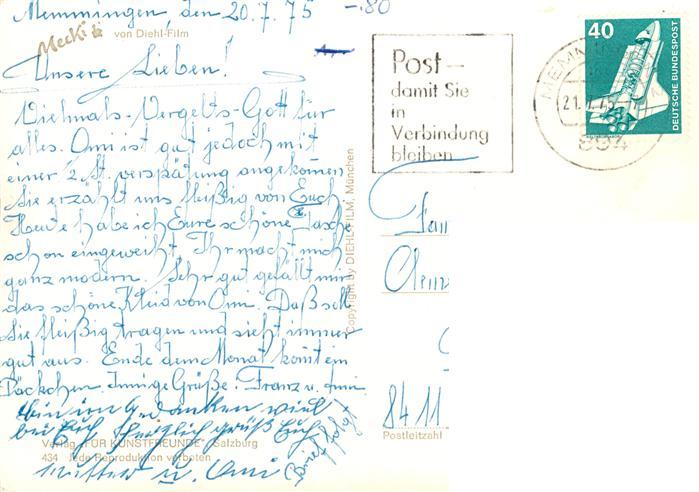 Memmingen, den 20.7.75 -.80
Mecki
von Diehl-Film
Unsere Lieben!
Vielmals-Vergelts-Gott für
alles. Omi ist gut jedoch mit
einer 2 St. verspätung angekom̄en
Sie erzählt uns fleißig von Euch
Heute habe ich Eure schöne Tasche
schon eingeweiht. Ihr macht mich
ganz modern. Sehr gut gefällt mir
das schöne Kleid von Omi. Daß soll
Sie fleißig tragen und sieht immer
gut aus. Ende dem Monat kom̄t ein
Päckchen. Innige Grüße. Franz u.
bin in Gedanken viel
bei Euch herzlich grüß Euch
Mutter u. Omi
Brief folgt
Verlag "FÜR KUNSTFREUNDE", Salzburg
434 Jede Reproduktion verboten
Copyright by DIEHL-FILM, München
Post –
damit Sie
in
Verbindung
bleiben
MEMM
21.7.75
894
40
DEUTSCHE BUNDESPOST
Fam
8411
Postleitzahl